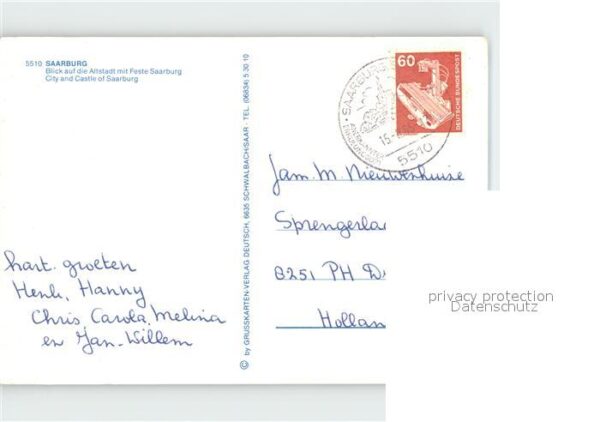 5510 SAARBURG
Blick auf die Altstadt mit Feste Saarburg
City and Castle of Saarburg
hart. groeten
Henk, Hanny
Chris Carola, Melina
en Jan-Willem
© by GRUSSKARTEN-VERLAG DEUTSCH, 6635 SCHWALBACH/SAAR - TEL. (06834) 5 30 10
SAARBURG
15.
5510
60
DEUTSCHE BUNDESPOST
Fam. M. Nieuwenhuise
Sprengerla
8251 PH D
Hollan
privacy protection
Datenschutz